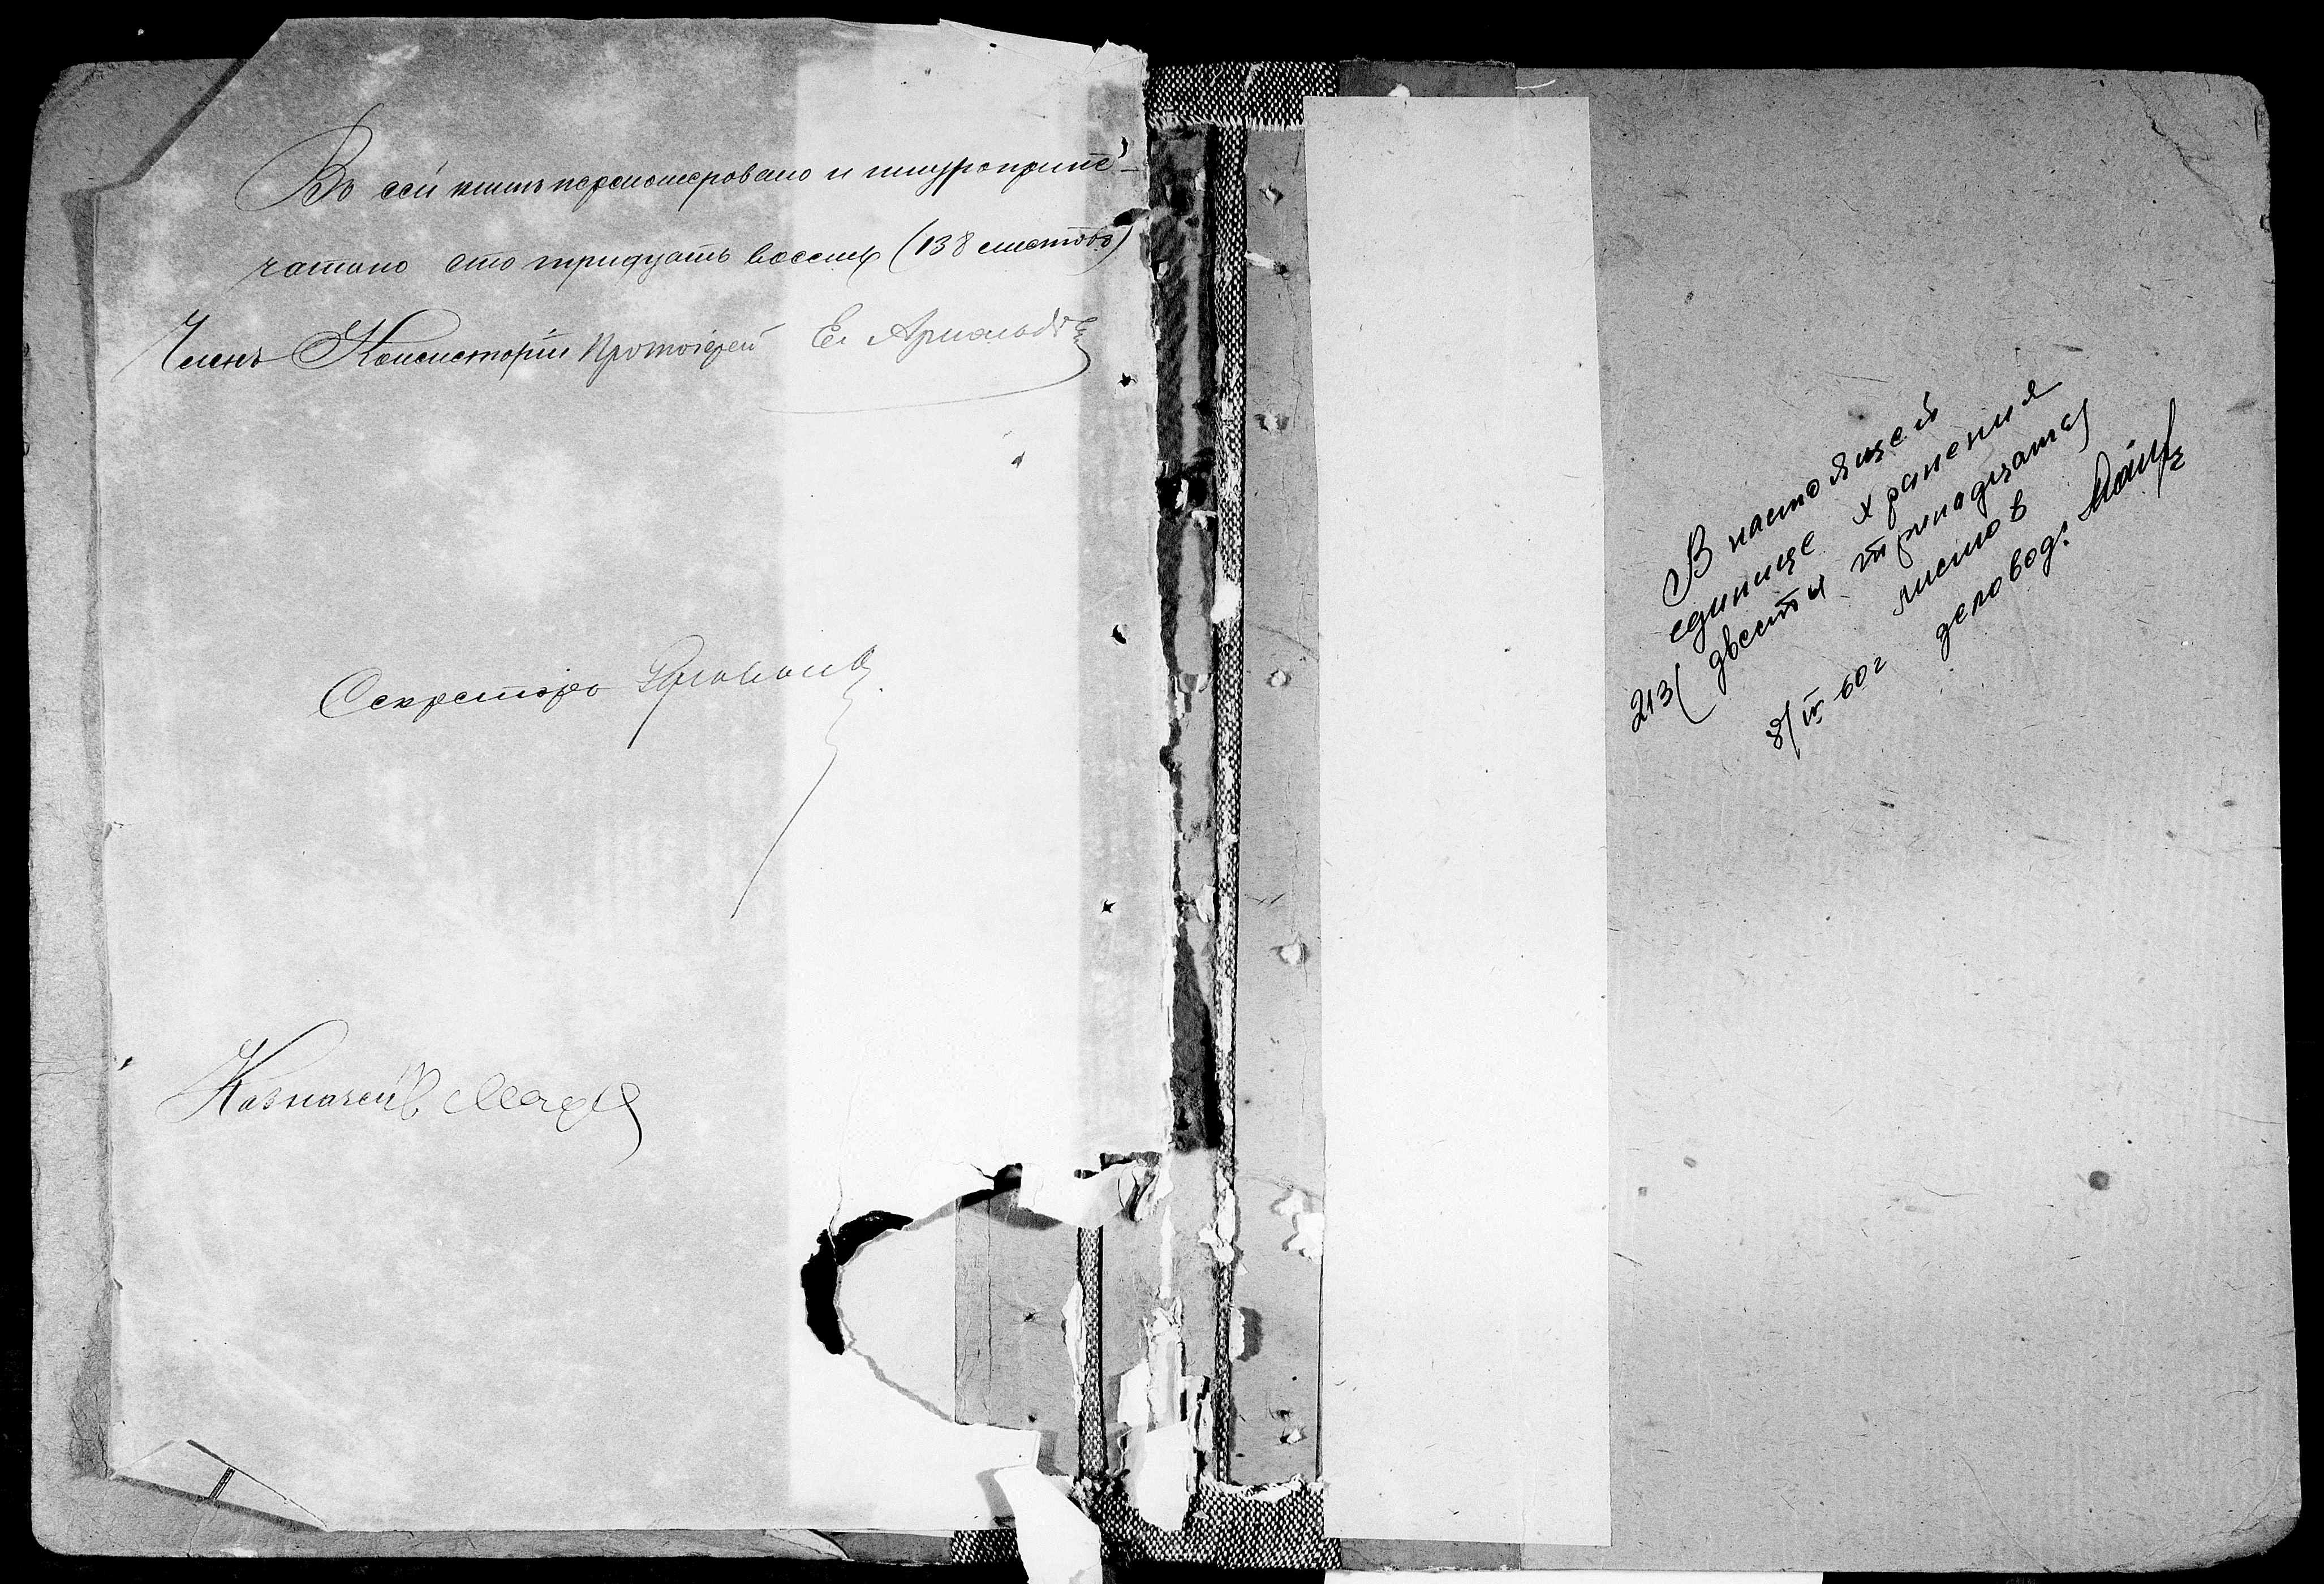 Въ сей книгѣ перенумеровано и шнуроприпе-
чатано сто тридцать восемь (138 листовъ)
Членъ Консисторіи Протоіерей Ел. Арнольдовъ
Секретарь
Казначей
В настоящей
единице хранения
213 (двести тринадцать)
листов
8/IV 60 г деловод: